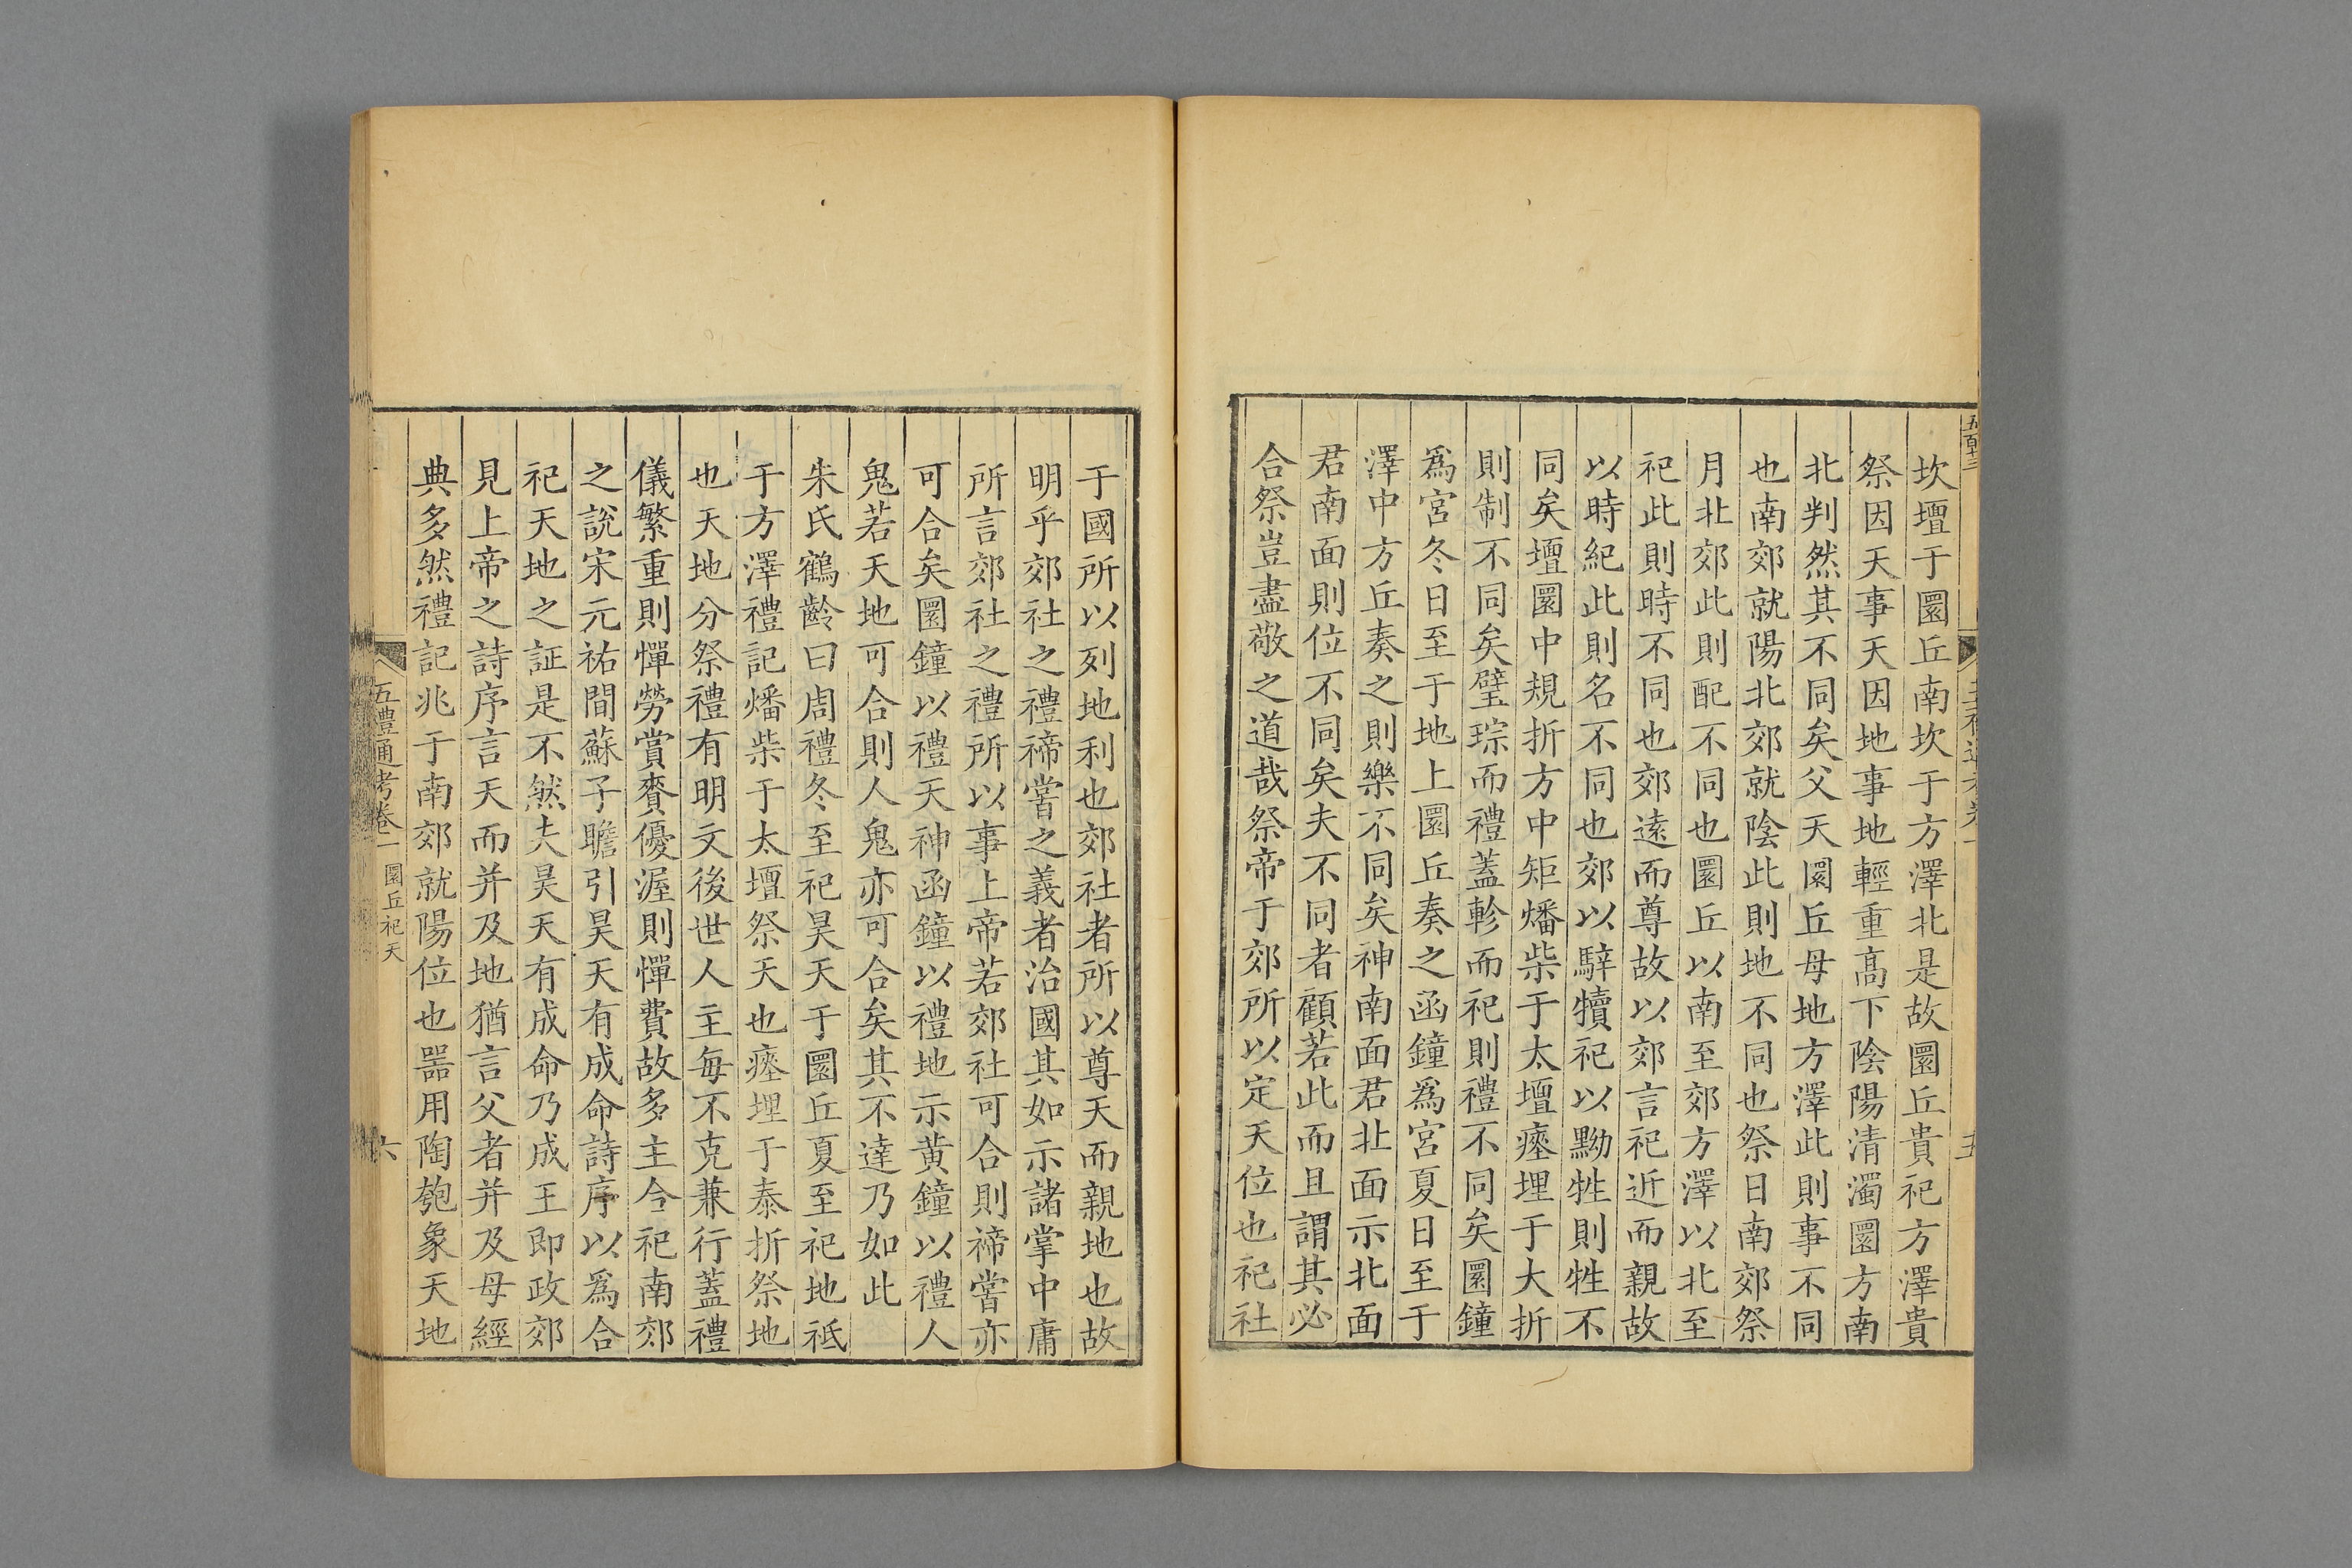 五百十三
坎壇于圜丘南坎于方澤北是故圜丘貴祀方澤貴
祭因天事天因地事地輕重高下陰陽清濁圜方南
北判然其不同矣父天圜丘母地方澤此則事不同
也南郊就陽北郊就陰此則地不同也祭日南郊祭
月北郊此則配不同也圜丘以南至郊方澤以北至
祀此則時不同也郊遠而尊故以郊言祀近而親故
以時紀此則名不同也郊以騂犢祀以黝牲則牲不
同矣壇圜中規折方中矩燔柴于太壇瘞埋于大折
則制不同矣璧琮而禮蓋軫而祀則禮不同矣圜鐘
爲宮冬日至于地上圜丘奏之函鐘爲宮夏日至于
澤中方丘奏之則樂不同矣神南面君北面示北面
君南面則位不同矣夫不同者顧若此而且謂其必
合祭豈盡敬之道哉祭帝于郊所以定天位也祀社
于國所以列地利也郊社者所以尊天而親地也故
明乎郊社之禮禘嘗之義者治國其如示諸掌中庸
所言郊社之禮所以事上帝若郊社可合則禘嘗亦
可合矣圜鐘以禮天神函鐘以禮地示黄鐘以禮人
鬼若天地可合則人鬼亦可合矣其不達乃如此
朱氏鶴齡曰周禮冬至祀昊天于圜丘夏至祀地祗
于方澤禮記燔柴于太壇祭天也瘞埋于泰折祭地
也天地分祭禮有明文後世人主每不克兼行蓋禮
儀繁重則憚勞賞賚優渥則憚費故多主合祀南郊
之說宋元祐間蘇子瞻引昊天有成命詩序以爲合
祀天地之証是不然夫昊天有成命乃成王即政郊
見上帝之詩序言天而并及地猶言父者并及母經
典多然禮記兆于南郊就陽位也器用陶匏象天地
五禮通考卷一 圜丘祀天
六